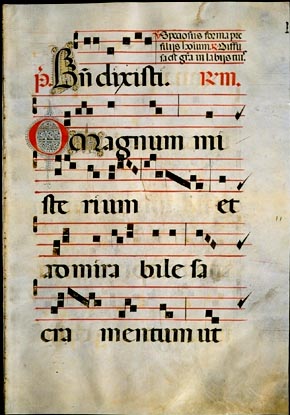 Speciosus forma pre
filijs hoium. Diffu
sa est gra in labijs tuis.
Bñdixisti.
O Magnum mi
ste rium et
admira bile sa
cra mentum ut